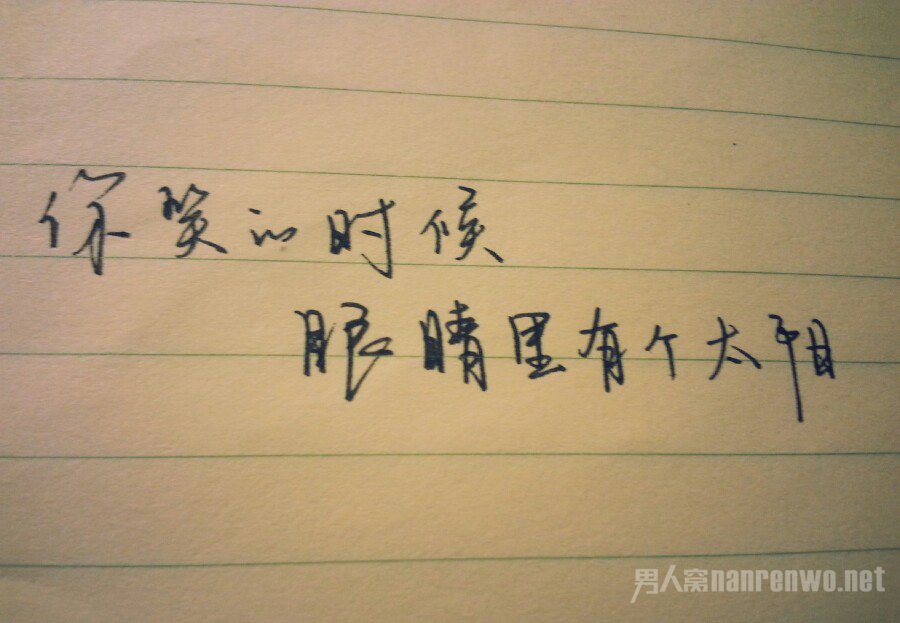 你笑的时候
眼睛里有个太阳
男人窝nanrenwo.net